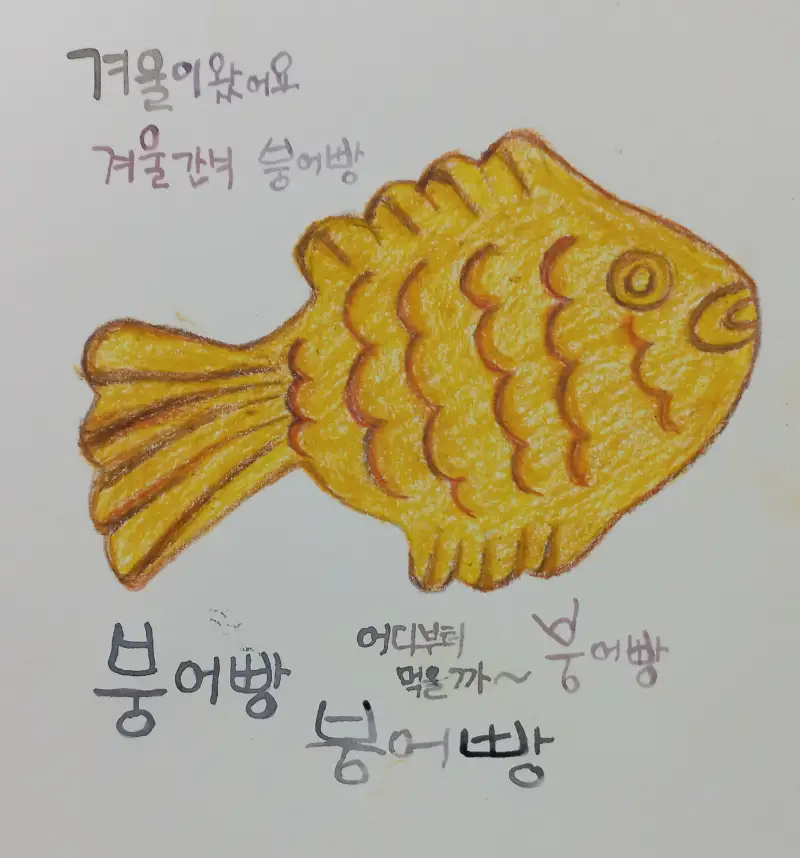 겨울이왔어요
겨울간식 붕어빵
붕어빵
어디부터
먹을까~
붕어빵
붕어빵